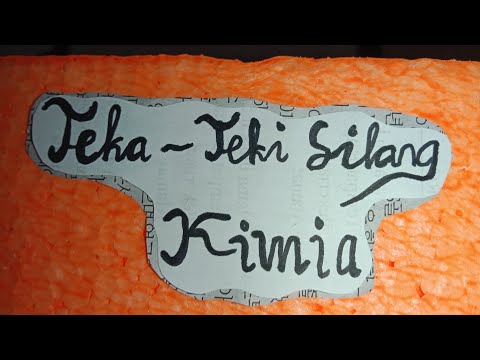 Teka ~ Teki Silang
Kimia